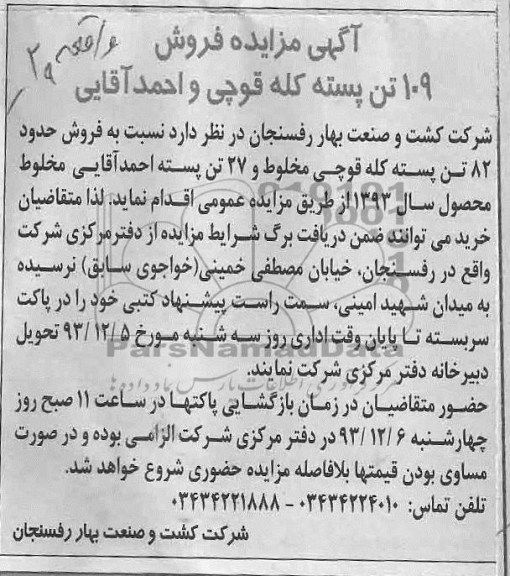 آگهی مزایده فروش
۱۰۹ تن پسته کله قوچی و احمدآقایی
شرکت کشت و صنعت بهار رفسنجان در نظر دارد نسبت به فروش حدود
۸۲ تن پسته کله قوچی مخلوط و ۲۷ تن پسته احمدآقایی مخلوط
محصول سال ۱۳۹۳ از طریق مزایده عمومی اقدام نماید. لذا متقاضیان
خرید می توانند ضمن دریافت برگ شرایط مزایده از دفتر مرکزی شرکت
واقع در رفسنجان، خیابان مصطفی خمینی(خواجوی سابق) نرسیده
به میدان شهید امینی، سمت راست پیشنهاد کتبی خود را در پاکت
سربسته تا پایان وقت اداری روز سه شنبه مورخ ۹۳/۱۲/۵ تحویل
دبیرخانه دفتر مرکزی شرکت نمایند.
حضور متقاضیان در زمان بازگشایی پاکتها در ساعت ۱۱ صبح روز
چهارشنبه ۹۳/۱۲/۶ در دفتر مرکزی شرکت الزامی بوده و در صورت
مساوی بودن قیمتها بلافاصله مزایده حضوری شروع خواهد شد.
تلفن تماس: ۰۳۴۳۴۲۲۴۰۱۰ - ۰۳۴۳۴۲۲۱۸۸۸
شرکت کشت و صنعت بهار رفسنجان
ParsNamadData